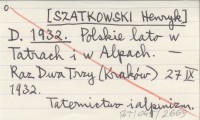 [SZATKOWSKI Henryk]
D. 1932. Polskie lato w
Tatrach i w Alpach. —
Raz Dwa Trzy (Kraków) 27 IX
1932.
Taternictwo i alpinizm.